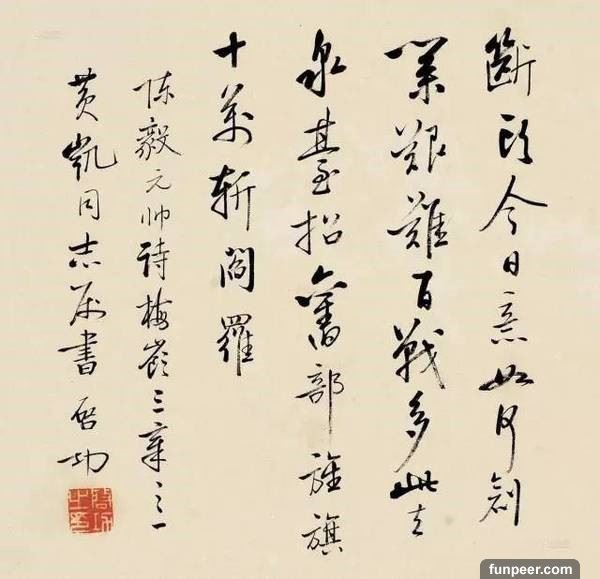 斷頭今日意如何創
業艱難百戰多此去
泉臺招舊部旌旗
十萬斬閻羅
陈毅元帅诗梅嶺三章之一
黄凱同志属書 启功
funpeer.com